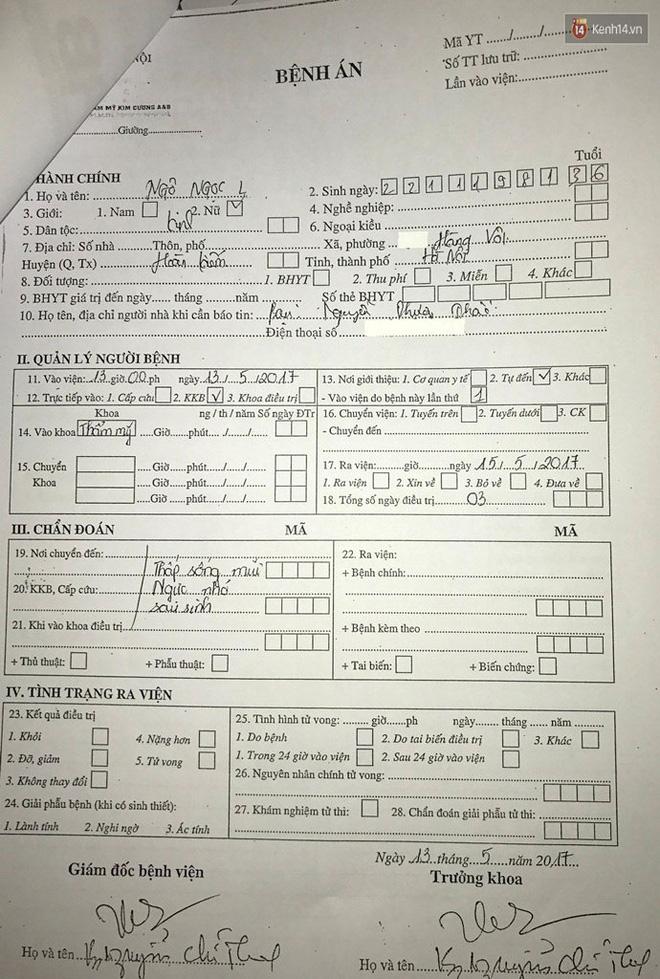 14 Kenh14.vn
Mã YT ....../....../......
...NỘI
Số TT lưu trữ:
BỆNH ÁN
Lần vào viện:
...ẨM MỸ KIM CƯƠNG A&B
Giường
HÀNH CHÍNH
Tuổi
1. Họ và tên: Ngô Ngọc L 2. Sinh ngày: 22 11 1981 36
3. Giới: 1. Nam 2. Nữ ✓ 4. Nghề nghiệp:
5. Dân tộc: Kinh 6. Ngoại kiều
7. Địa chỉ: Số nhà ........ Thôn, phố Xã, phường Hàng Vôi
Huyện (Q, Tx) Hoàn Kiếm Tỉnh, thành phố Hà Nội
8. Đối tượng: 1. BHYT 2. Thu phí 3. Miễn 4. Khác
9. BHYT giá trị đến ngày..... tháng .......năm Số thẻ BHYT
10. Họ tên, địa chỉ người nhà khi cần báo tin: Nguyễn Thảo
Điện thoại số
II. QUẢN LÝ NGƯỜI BỆNH
11. Vào viện: 13 giờ 00 ph ngày 13 / 5 / 2017
12. Trực tiếp vào: 1. Cấp cứu 2. KKB ✓ 3. Khoa điều trị
13. Nơi giới thiệu: 1. Cơ quan y tế 2. Tự đến ✓ 3. Khác
- Vào viện do bệnh này lần thứ 1
Khoa ng / th / năm Số ngày ĐTr
14. Vào khoa Thẩm mỹ ....Giờ......phút...../...../.....
15. Chuyển ....Giờ......phút...../...../.....
Khoa ....Giờ......phút...../...../.....
....Giờ......phút...../...../.....
16. Chuyển viện: 1. Tuyến trên 2. Tuyến dưới 3. CK
- Chuyển đến
17. Ra viện:..........giờ..........ngày 15 / 5 / 2017
1. Ra viện 2. Xin về 3. Bỏ về 4. Đưa về
18. Tổng số ngày điều trị 03
III. CHẨN ĐOÁN MÃ MÃ
19. Nơi chuyển đến:
Thấp sống mũi
20. KKB, Cấp cứu: Ngực nhỏ
sau sinh
21. Khi vào khoa điều trị
+ Thủ thuật: + Phẫu thuật:
22. Ra viện:
+ Bệnh chính:
+ Bệnh kèm theo
+ Tai biến: + Biến chứng:
IV. TÌNH TRẠNG RA VIỆN
23. Kết quả điều trị
1. Khỏi 4. Nặng hơn
2. Đỡ, giảm 5. Tử vong
3. Không thay đổi
24. Giải phẫu bệnh (khi có sinh thiết):
1. Lành tính 2. Nghi ngờ 3. Ác tính
25. Tình hình tử vong: ......... giờ......ph ngày....... tháng ...... năm
1. Do bệnh 2. Do tai biến điều trị 3. Khác
1. Trong 24 giờ vào viện 2. Sau 24 giờ vào viện
26. Nguyên nhân chính tử vong:
27. Khám nghiệm tử thi: 28. Chẩn đoán giải phẫu tử thi:
Ngày 13 tháng 5 năm 2017
Giám đốc bệnh viện Trưởng khoa
Họ và tên Họ và tên